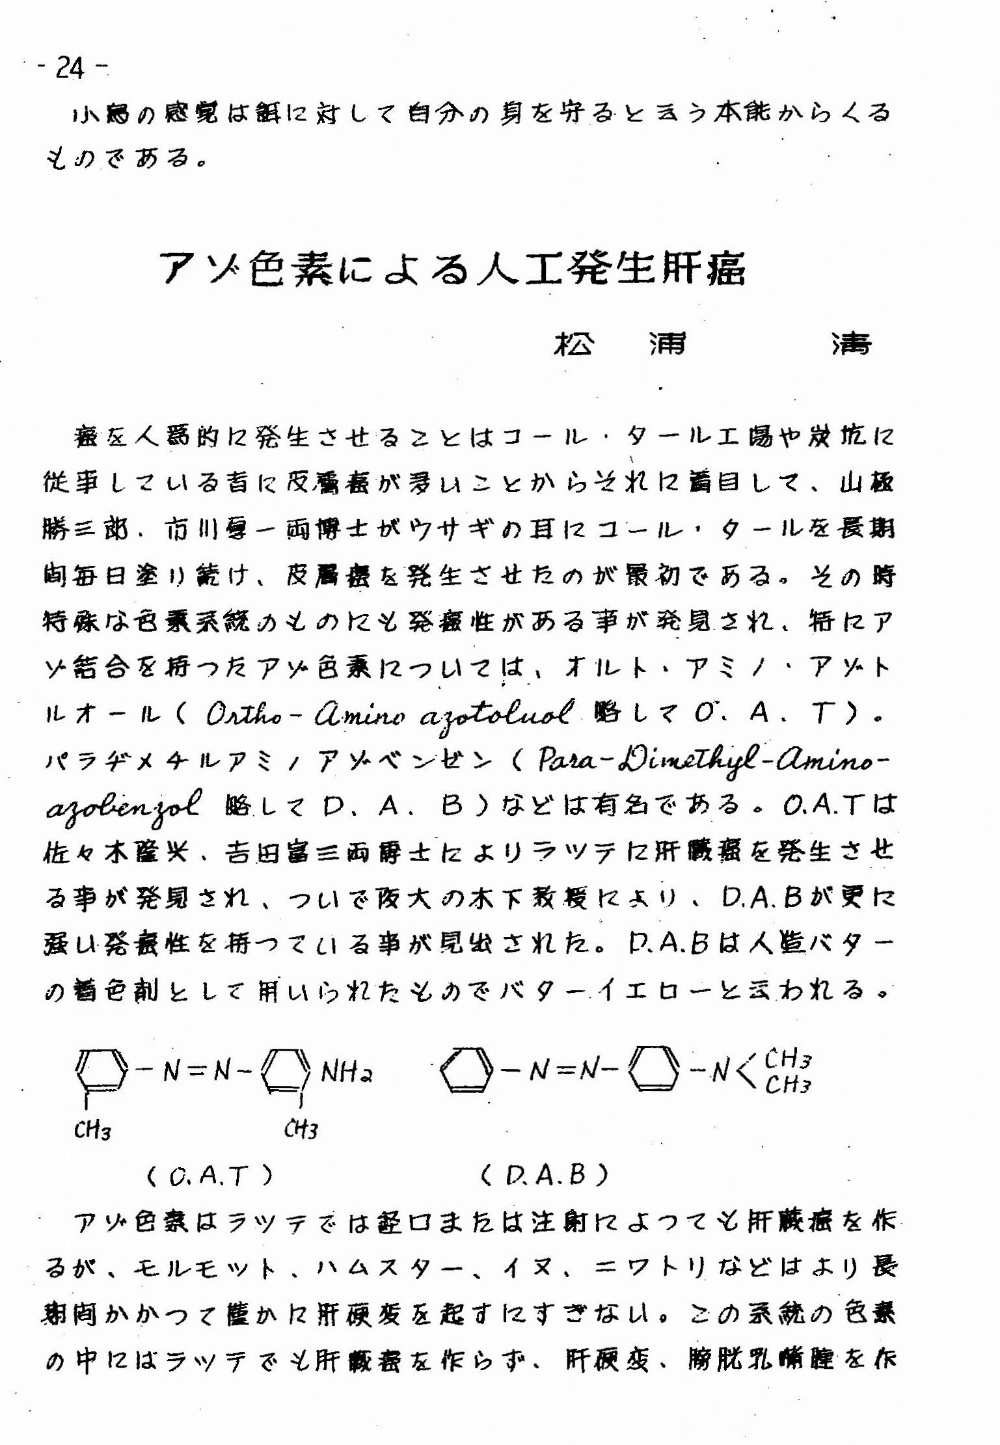 - 24 -
小鳥の感覚は餌に対して自分の身を守ると云う本能からくる
ものである。
アゾ色素による人工発生肝癌
松浦 清
癌を人為的に発生させることはコール・タール工場や炭坑に
従事している者に皮膚癌が多いことからそれに着目して、山極
勝三郎．市川厚一両博士がウサギの耳にコール・タールを長期
間毎日塗り続け、皮膚癌を発生させたのが最初である。その時
特殊な色素系統のものにも発癌性がある事が発見され、特にア
ゾ結合を持つたアゾ色素については、オルト・アミノ・アゾト
ルオール（Ortho-Amino azotoluol 略してO．A．T）。
パラヂメチルアミノアゾベンゼン（Para-Dimethyl-Amino-
azobenzol 略してD．A．B）などは有名である。O.A.Tは
佐々木隆興、吉田富三両博士によりラツテに肝臓癌を発生させ
る事が発見され、ついで阪大の木下教授により、D.A.Bが更に
強い発癌性を持つている事が見出された。D.A.Bは人造バター
の着色剤として用いられたものでバターイエローと云われる。
-N=N- NH2 -N=N- -N< CH3
CH3
CH3 CH3
（O.A.T） （D.A.B）
アゾ色素はラツテでは経口または注射によつても肝臓癌を作
るが、モルモット、ハムスター、イヌ、ニワトリなどはより長
期間かかつて僅かに肝硬変を起すにすぎない。この系統の色素
の中にはラツテでも肝臓癌を作らず、肝硬変、膀胱乳嘴腫を作